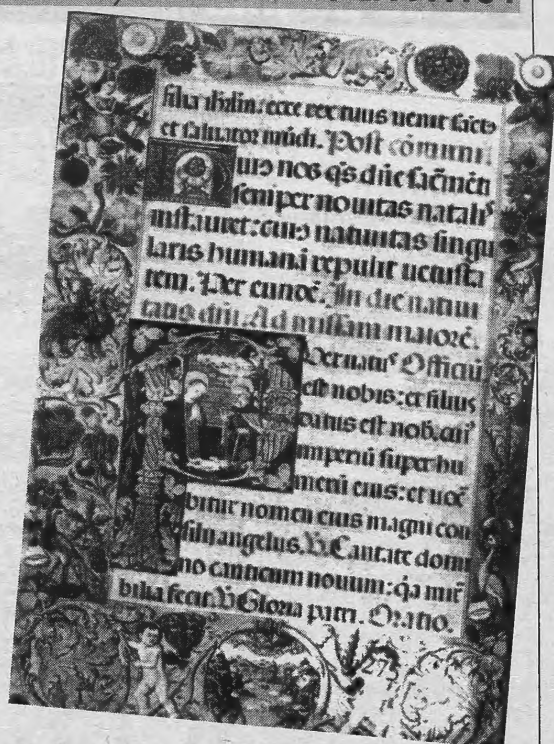 filia ihrlm: ecce rex tuus uenit sāctꝰ
et saluator mūdi. Post cōmuni.
uiꝰ nos qs dñe sacmēti
semper nouitas natalꝭ
instauret: cuiꝰ natiuitas singu
laris humanā repulit uetusta
tem. Per eundē. In die natiui
tatis dñi. Ad missam maiorē.
Uer natuˢ Officiū
est nobis: et filius
datus est nob. cuiˢ
imperiū super hu
merū eius: et uoca
bitur nomen eius magni con
silii angelus. V. Cantate domi
no canticum nouum: qa mir
bilia fecit. V. Gloria patri. Oratio.